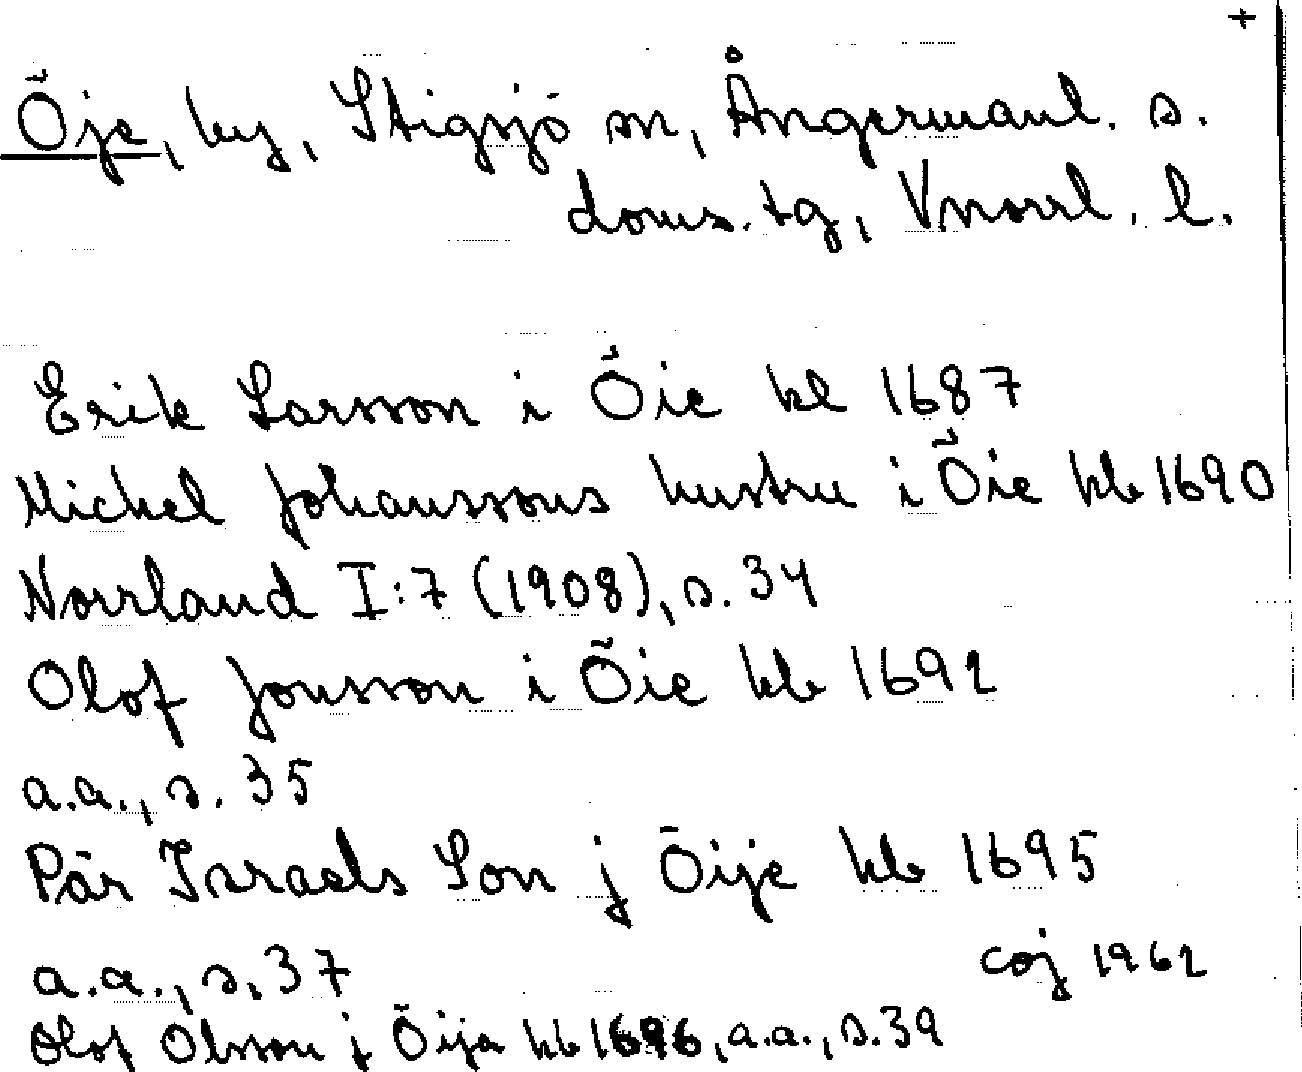 +
Öje, by, Stigsjö sn, Ångermanl. s.
doms. tg, Vnorrl. l.
Erik Larsson i Öie kl 1687
Michel Johanssons hustru i Öie kb 1690
Norrland I:7 (1908), s. 34
Olof Jonsson i Öie kb 1692
a.a., s. 35
Pär Israels Son j Öije kb 1695
a.a., s. 37
COJ 1962
Olof Olsson j Öija kb 1696, a.a., s. 39